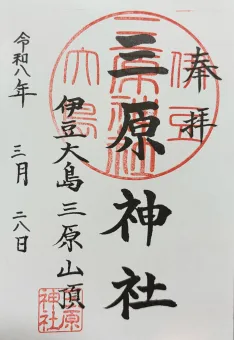 奉拝
伊豆
三原神社
大島
三原神社
伊豆大島三原山頂
三原神社
令和八年 三月 二八日